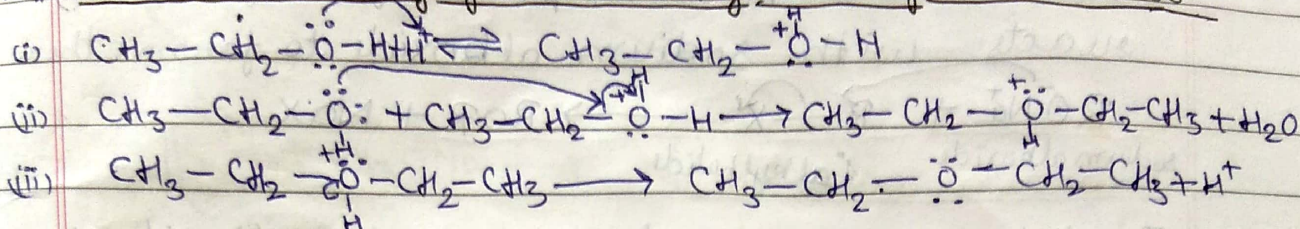 (i) CH3-CH2-Ö-H+H+ ⇌ CH3-CH2-+Ö-H
H
(ii) CH3-CH2-Ö: + CH3-CH2-+Ö-H → CH3-CH2-+Ö-CH2-CH3+H2O
H H H
(iii) CH3-CH2-+Ö-CH2-CH3 → CH3-CH2-Ö-CH2-CH3+H+
H